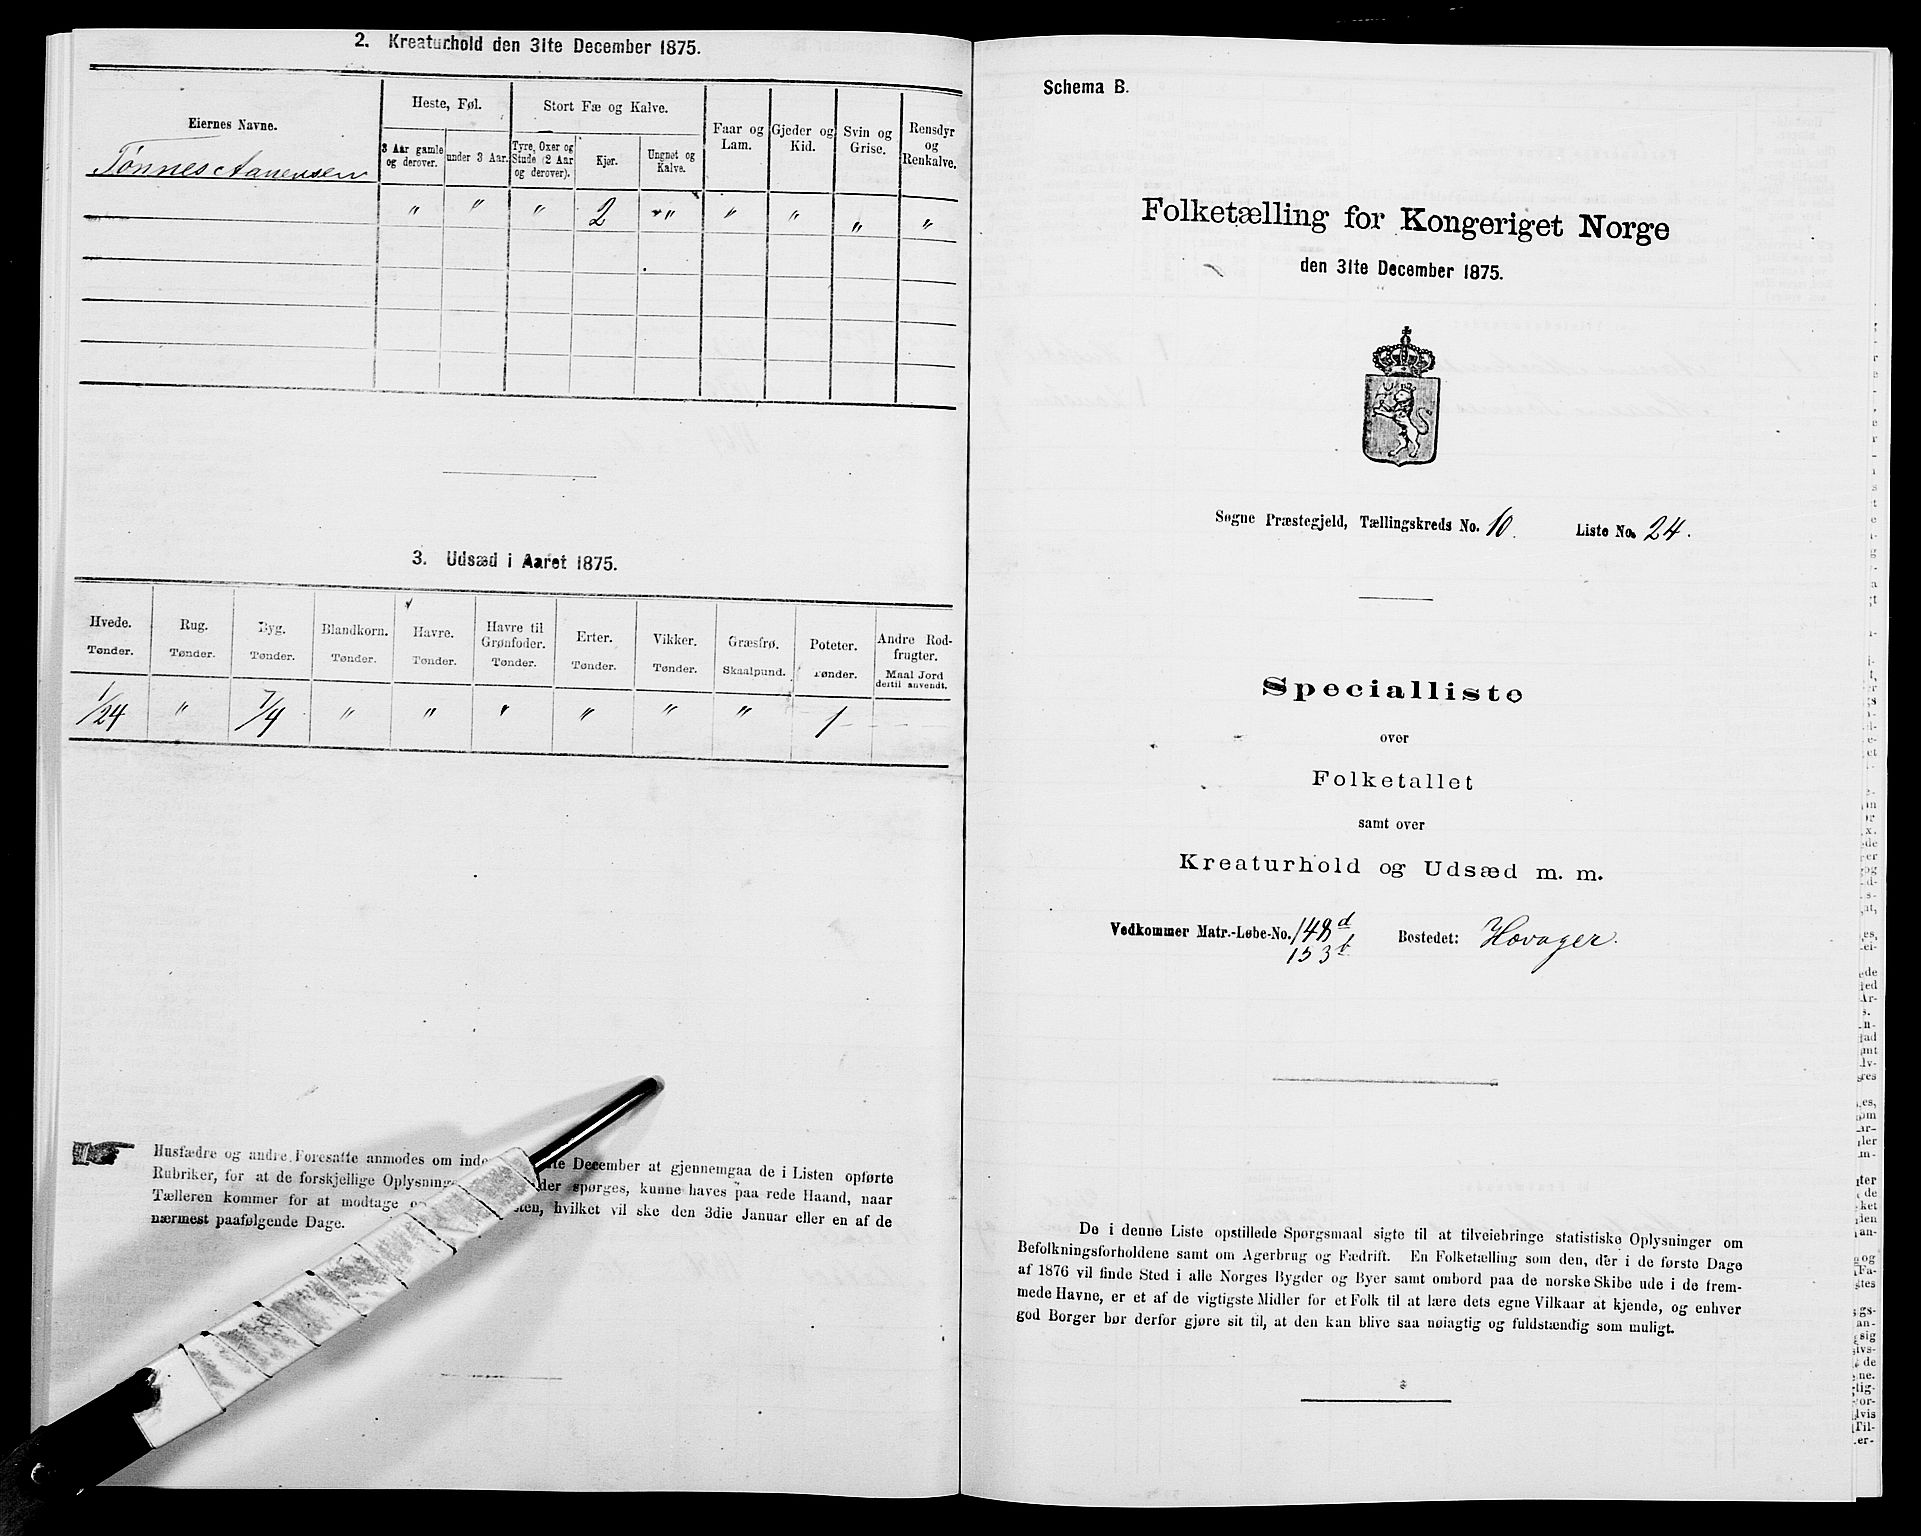 2. Kreaturhold den 31te December 1875.
Eiernes Navne.
Heste, Føl.
3 Aar gamle og derover.
under 3 Aar.
Stort Fæ og Kalve.
Tyre, Oxer og Stude (2 Aar og derover).
Kjør.
Ungnøt og Kalve.
Faar og Lam.
Gjeder og Kid.
Svin og Grise.
Rensdyr og Renkalve.
Tønnes Aanensen
" " " 2 " " " " "
3. Udsæd i Aaret 1875.
Hvede. Tønder.
Rug. Tønder.
Byg. Tønder.
Blandkorn. Tønder.
Havre. Tønder.
Havre til Grønfoder. Tønder.
Erter. Tønder.
Vikker. Tønder.
Græsfrø. Skaalpund.
Poteter. Tønder.
Andre Rodfrugter. Maal Jord dertil anvendt.
1/24 " 7/4 " " " " " " 1
Husfædre og andre Foresatte anmodes om inde te December at gjennemgaa de i Listen opførte
Rubriker, for at de forskjellige Oplysning der spørges, kunne haves paa rede Haand, naar
Tælleren kommer for at modtage sten, hvilket vil ske den 3die Januar eller en af de
nærmest paafølgende Dage.
Schema B.
Folketælling for Kongeriget Norge
den 31te December 1875.
Søgne Præstegjeld, Tællingskreds No. 10. Liste No. 24.
Specialliste
over
Folketallet
samt over
Kreaturhold og Udsæd m. m.
Vedkommer Matr.-Løbe-No. 148 d Bostedet: Hovager.
153 b
De i denne Liste opstillede Spørgsmaal sigte til at tilveiebringe statistiske Oplysninger om
Befolkningsforholdene samt om Agerbrug og Fædrift. En Folketælling som den, der i de første Dage
af 1876 vil finde Sted i alle Norges Bygder og Byer samt ombord paa de norske Skibe ude i de frem-
mede Havne, er et af de vigtigste Midler for et Folk til at lære dets egne Vilkaar at kjende, og enhver
god Borger bør derfor gjøre sit til, at den kan blive saa nøiagtig og fuldstændig som muligt.